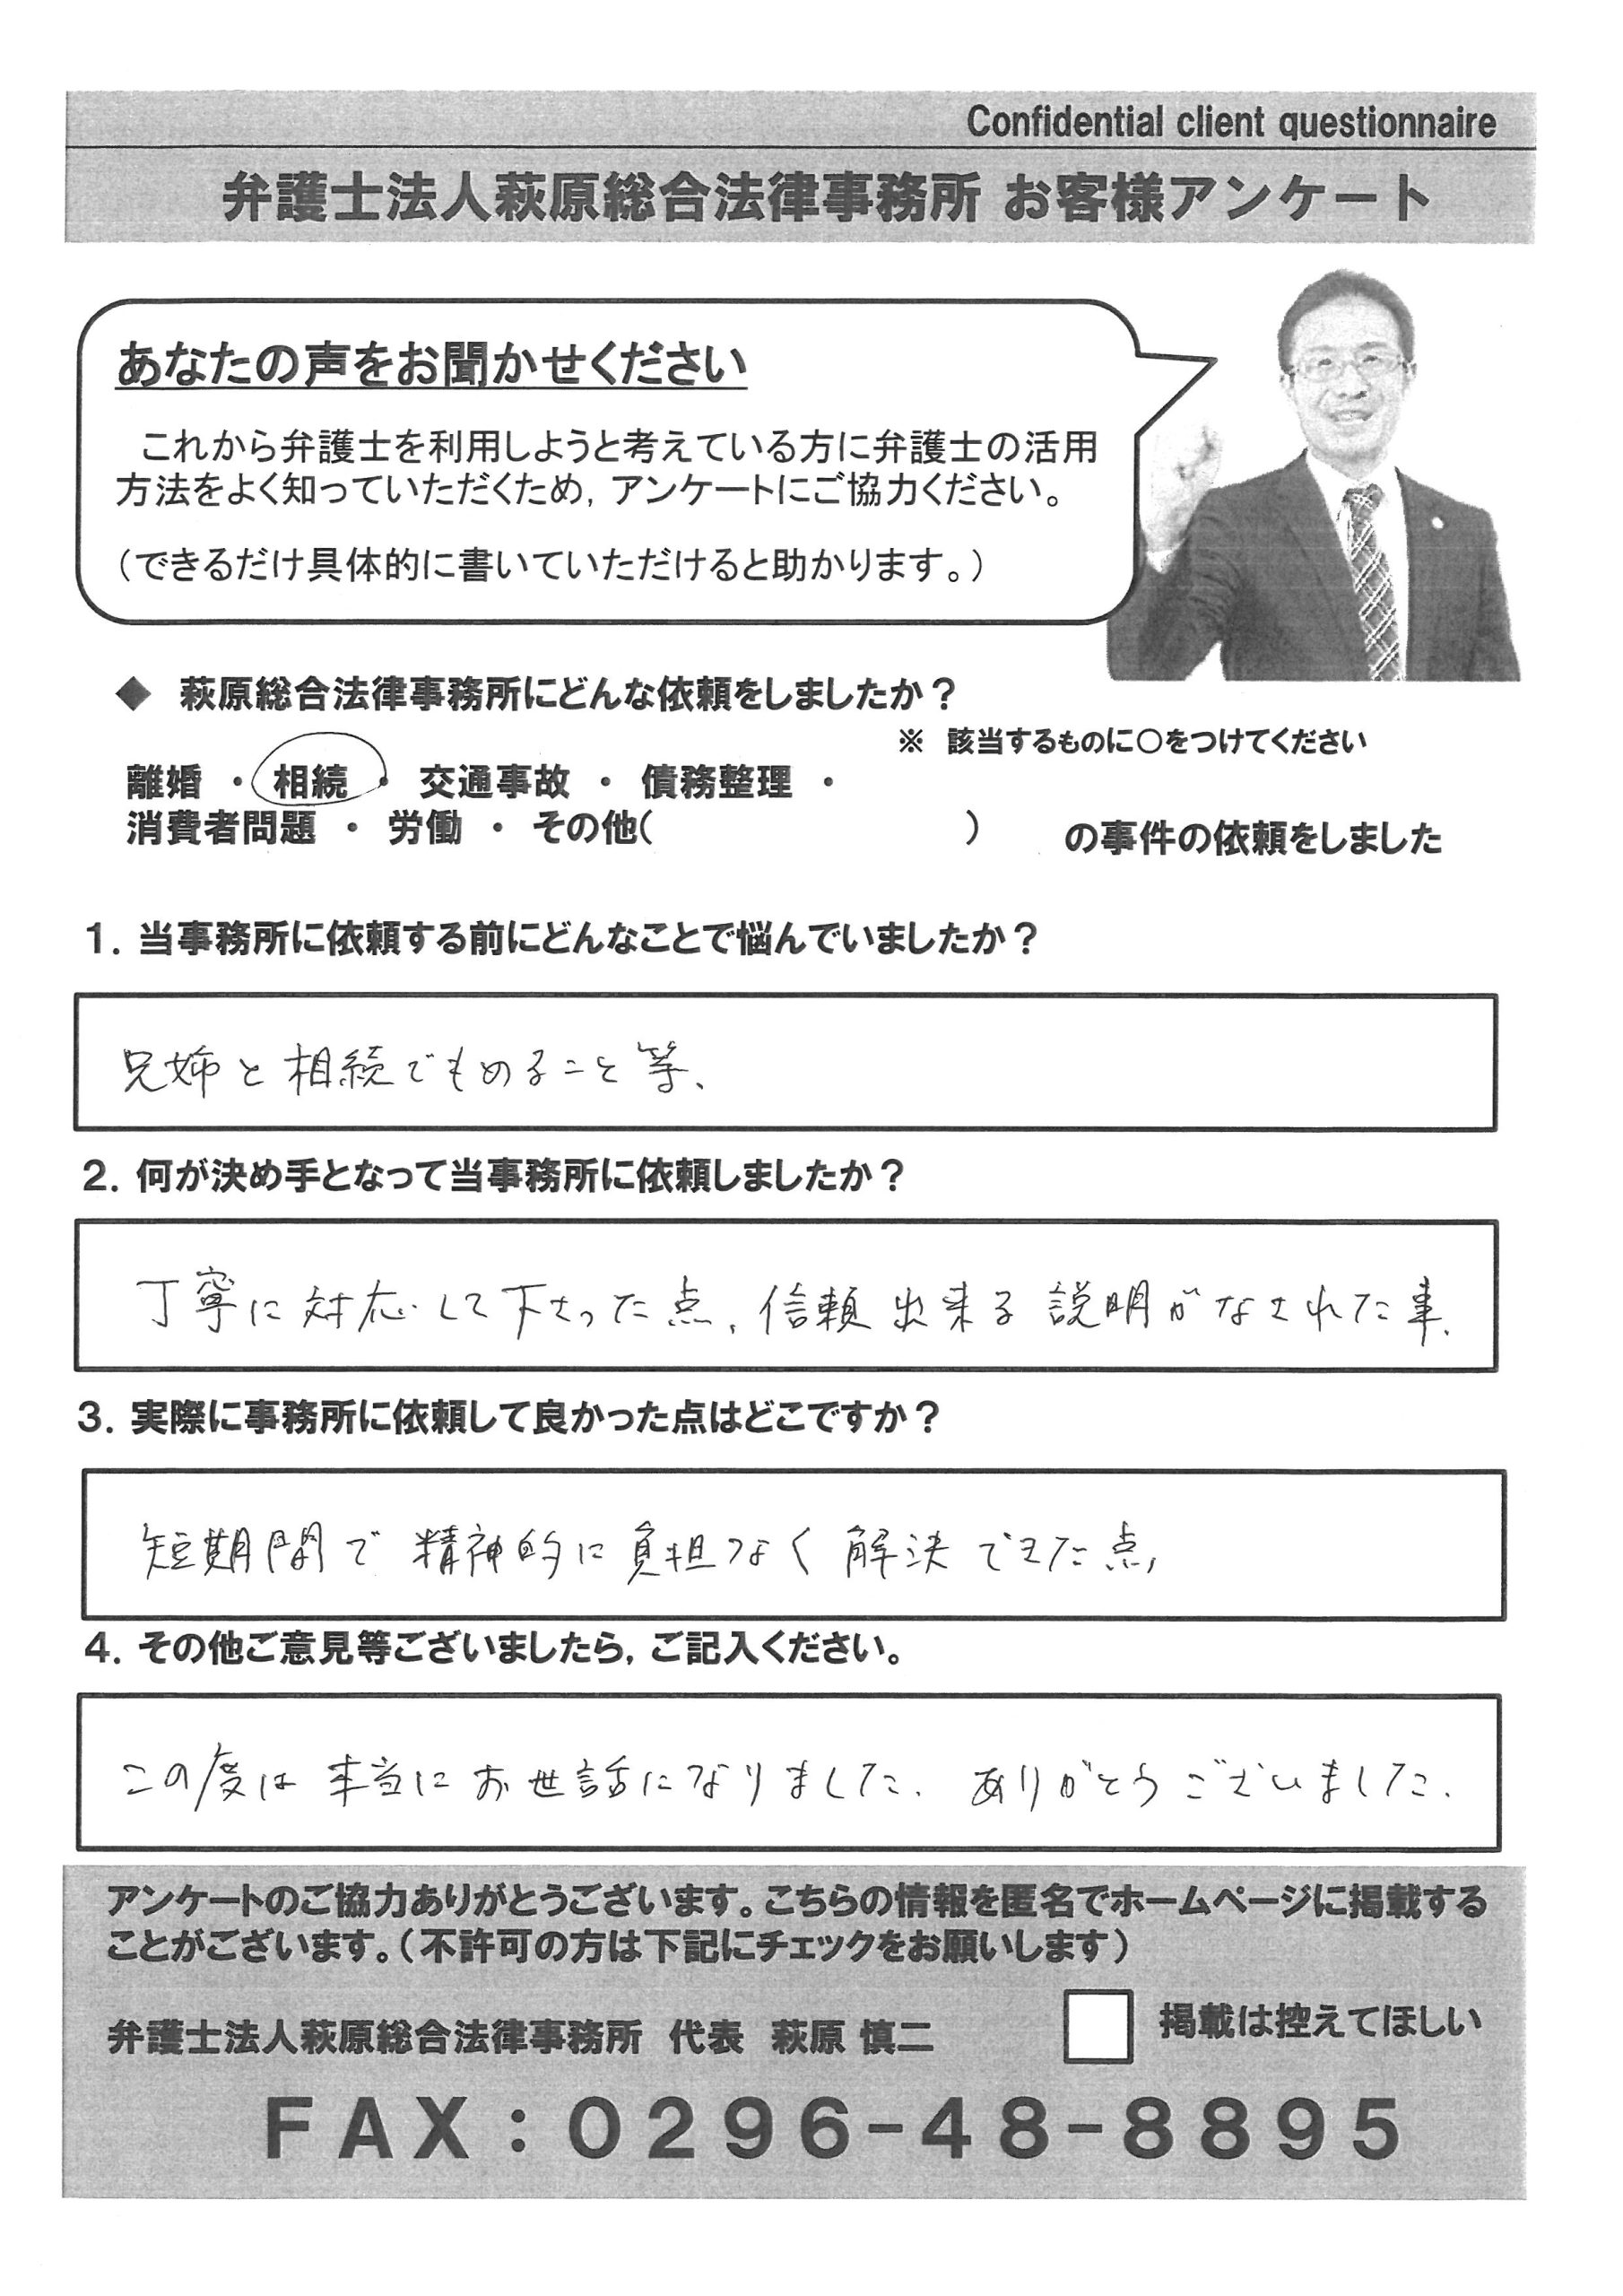 Confidential client questionnaire
弁護士法人萩原総合法律事務所 お客様アンケート
あなたの声をお聞かせください
これから弁護士を利用しようと考えている方に弁護士の活用
方法をよく知っていただくため，アンケートにご協力ください。
（できるだけ具体的に書いていただけると助かります。）
◆ 萩原総合法律事務所にどんな依頼をしましたか？
※ 該当するものに○をつけてください
離婚 ・ 相続 ・ 交通事故 ・ 債務整理 ・
消費者問題 ・ 労働 ・ その他（ ） の事件の依頼をしました
１．当事務所に依頼する前にどんなことで悩んでいましたか？
兄姉と相続でもめること等、
２．何が決め手となって当事務所に依頼しましたか？
丁寧に対応して下さった点、信頼出来る説明がなされた事、
３．実際に事務所に依頼して良かった点はどこですか？
短期間で精神的に負担なく解決できた点、
４．その他ご意見等ございましたら，ご記入ください。
この度は本当にお世話になりました．ありがとうございました．
アンケートのご協力ありがとうございます。こちらの情報を匿名でホームページに掲載する
ことがございます。（不許可の方は下記にチェックをお願いします）
掲載は控えてほしい
弁護士法人萩原総合法律事務所 代表 萩原 慎二
ＦＡＸ：０２９６－４８－８８９５